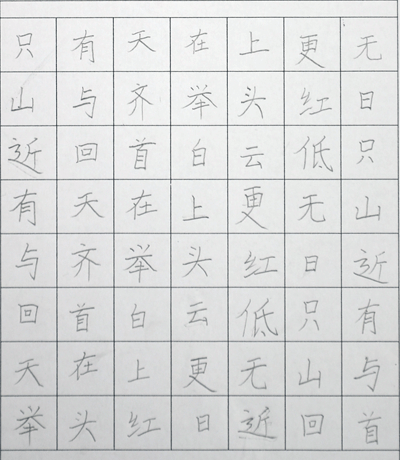 只有天在上更无
山与齐举头红日
近回首白云低只
有天在上更无山
与齐举头红日近
回首白云低只有
天在上更无山与
举头红日近回首